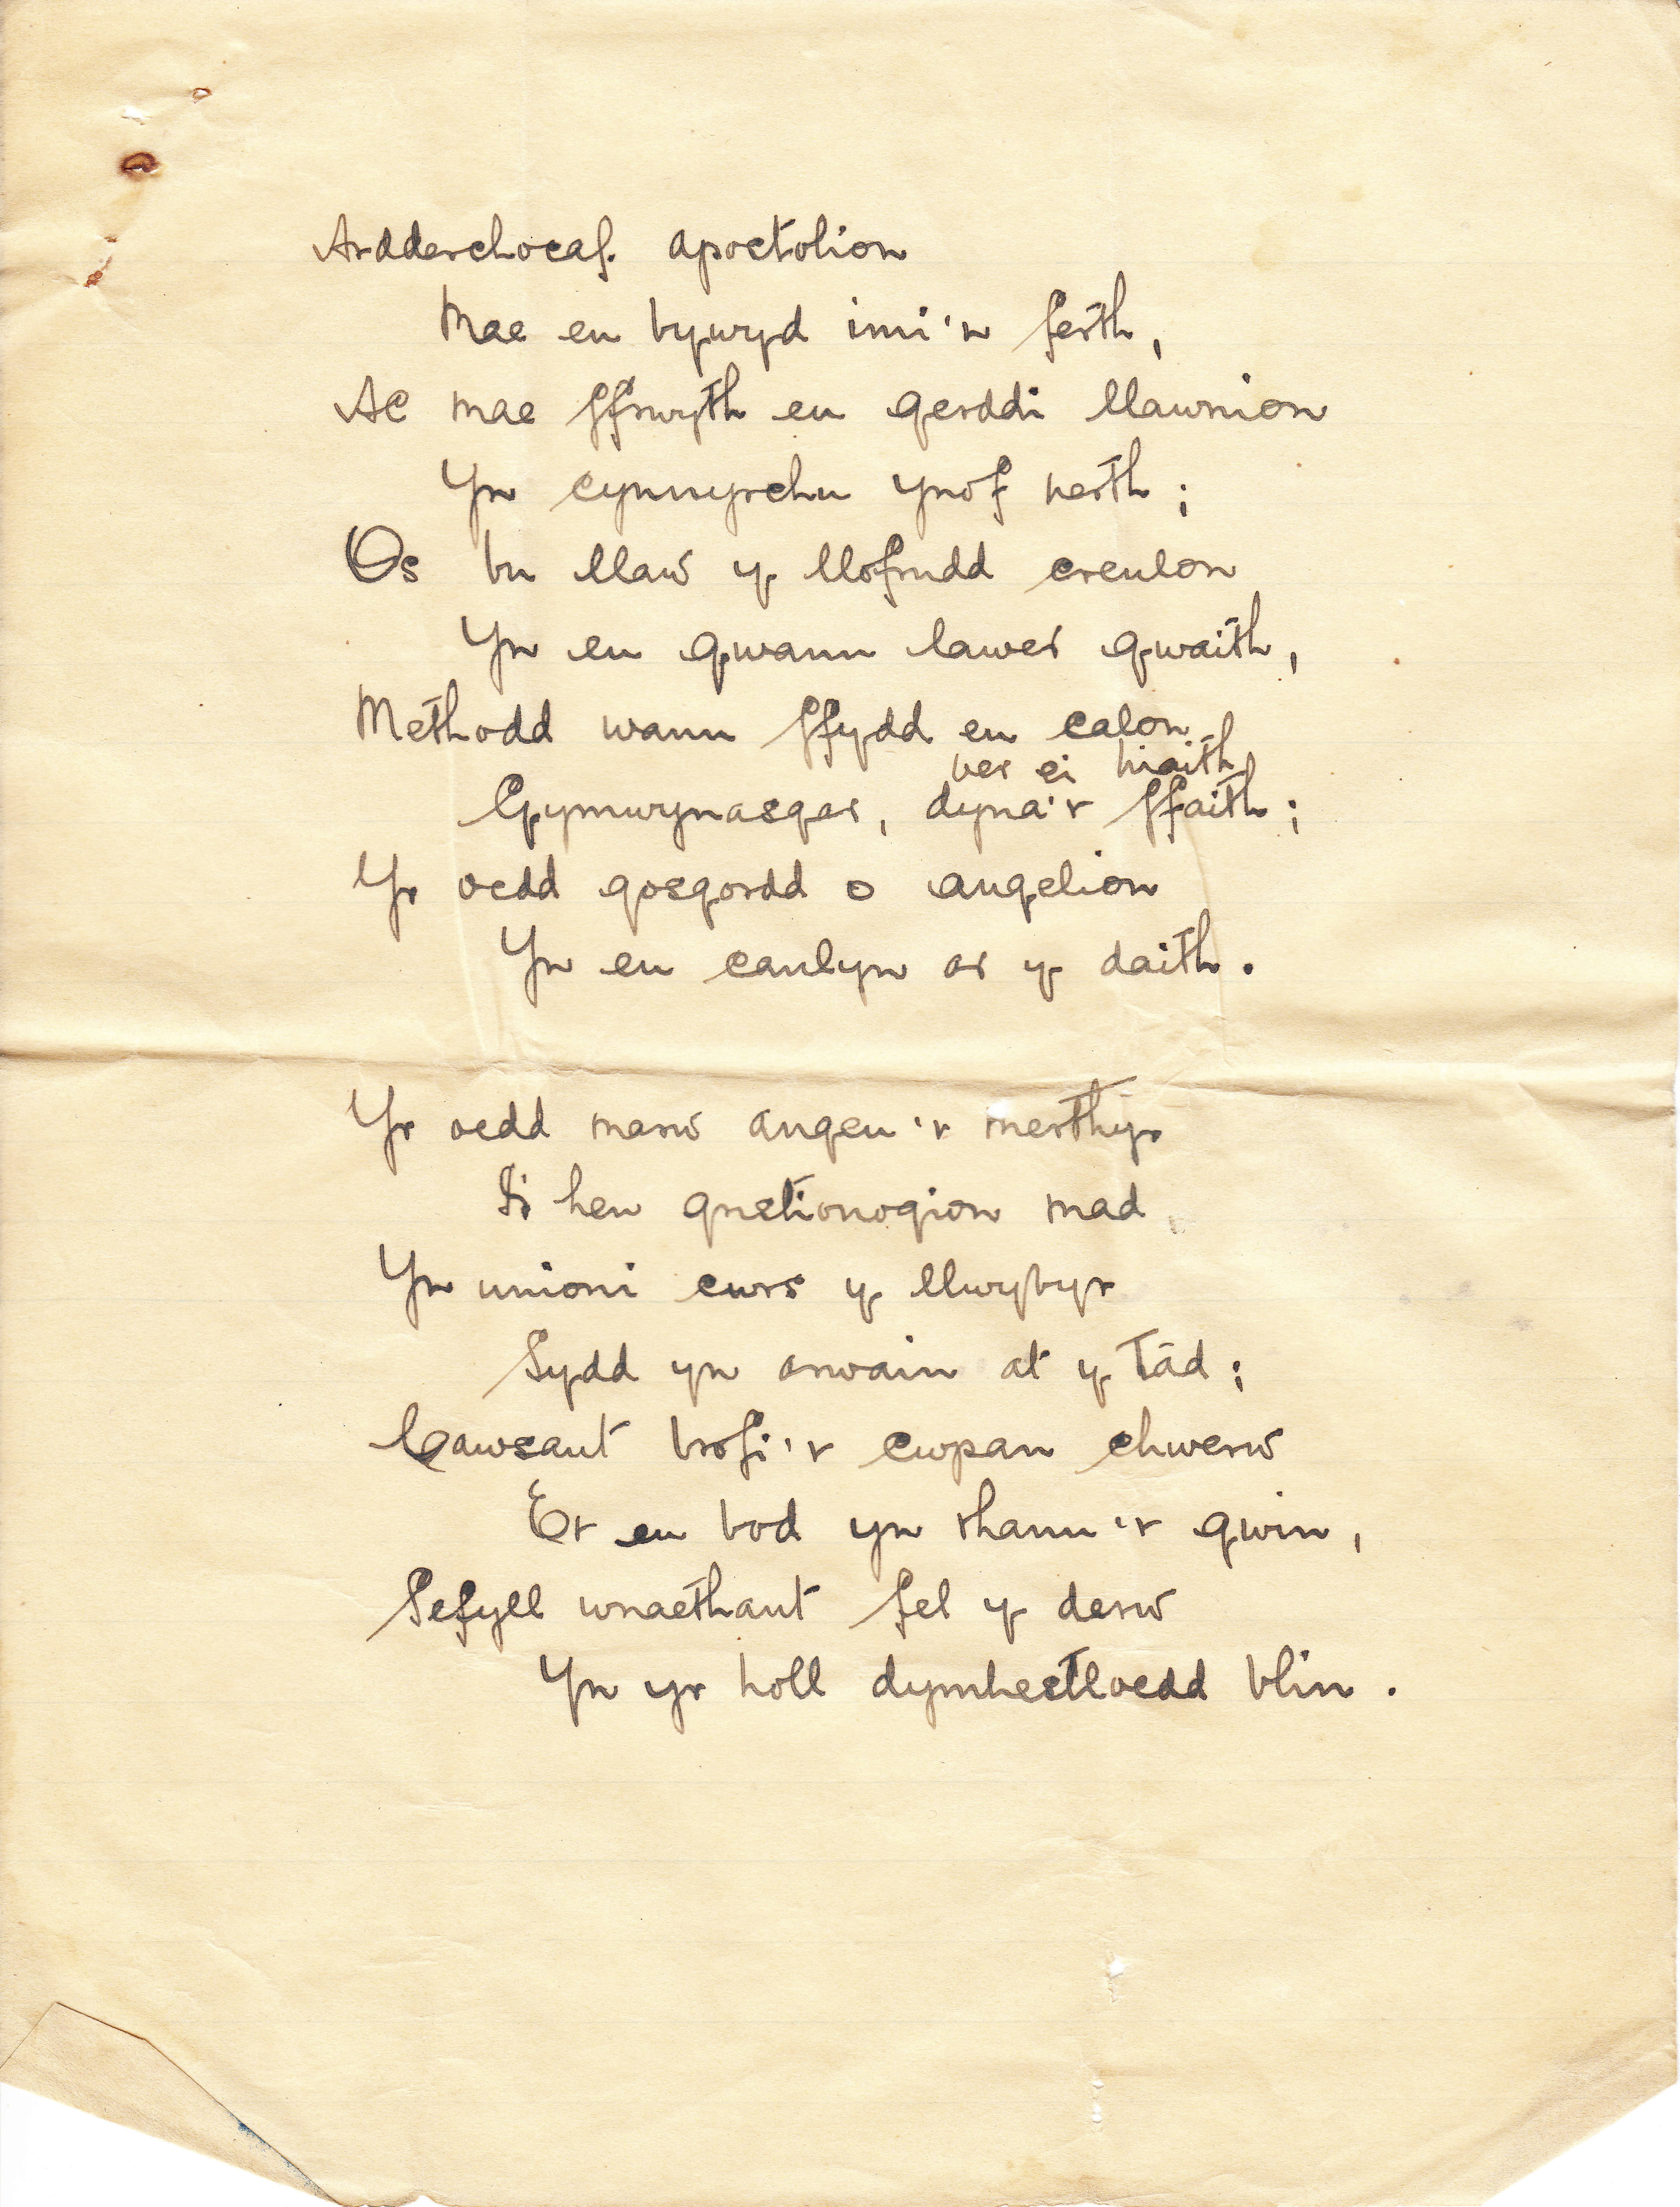 Ardderchocaf apostolion
Mae eu bywyd imi'n ferth,
Ac mae ffrwyth eu gerddi llawnion
Yn cynnyrchu ynof nerth;
Os bu llaw y llofrudd creulon
Yn eu gwanu lawer gwaith,
Methodd wanu ffydd eu calon
ber ei hiaith
Gymwynasgar, dyna'r ffaith;
Yr oedd gosgordd o angelion
Yn eu canlyn ar y daith.
Yr oedd marw angeu'r merthyr
I'r hen gristionogion mad
Yn unioni cwrs y llwybyr
Sydd yn arwain at y Tâd;
Cawsant brofi'r cwpan chwerw
Er eu bod yn rhanu'r gwin,
Sefyll wnaethant fel y derw
Yn yr holl dymhestloedd blin.